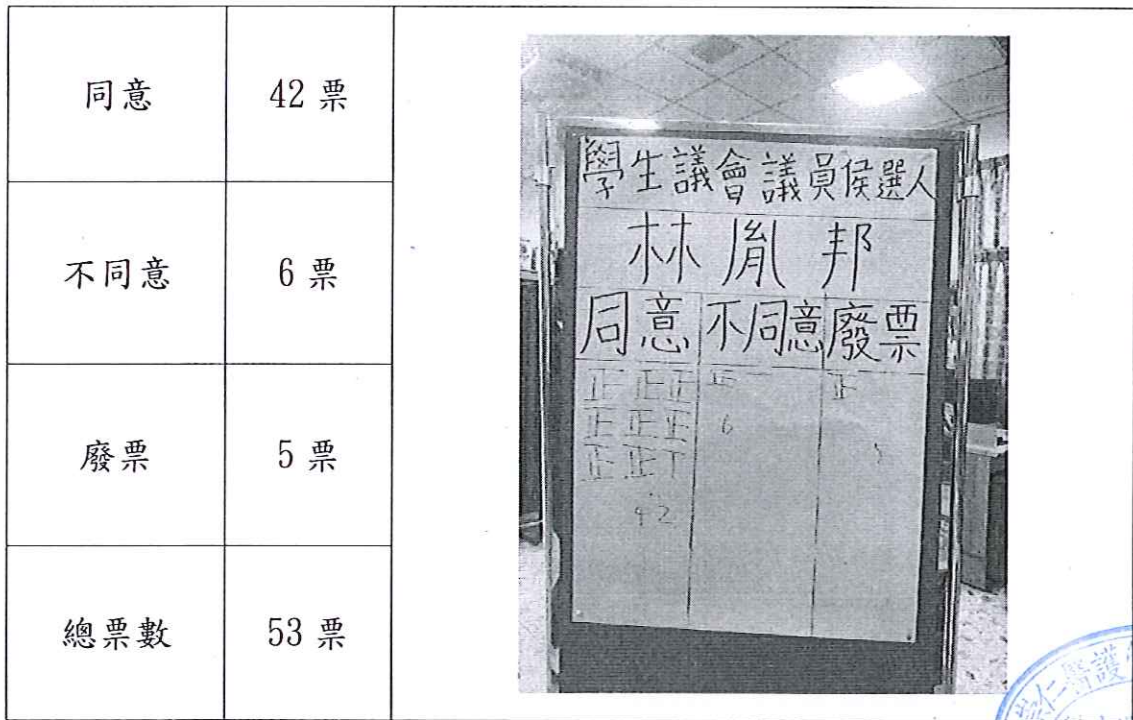 同意 42 票
不同意 6 票
廢票 5 票
總票數 53 票
學生議會議員候選人
林胤邦
同意 不同意 廢票
正 正 正 正 一 正
正 正 正 6
正 正 T 5
42
仁醫護